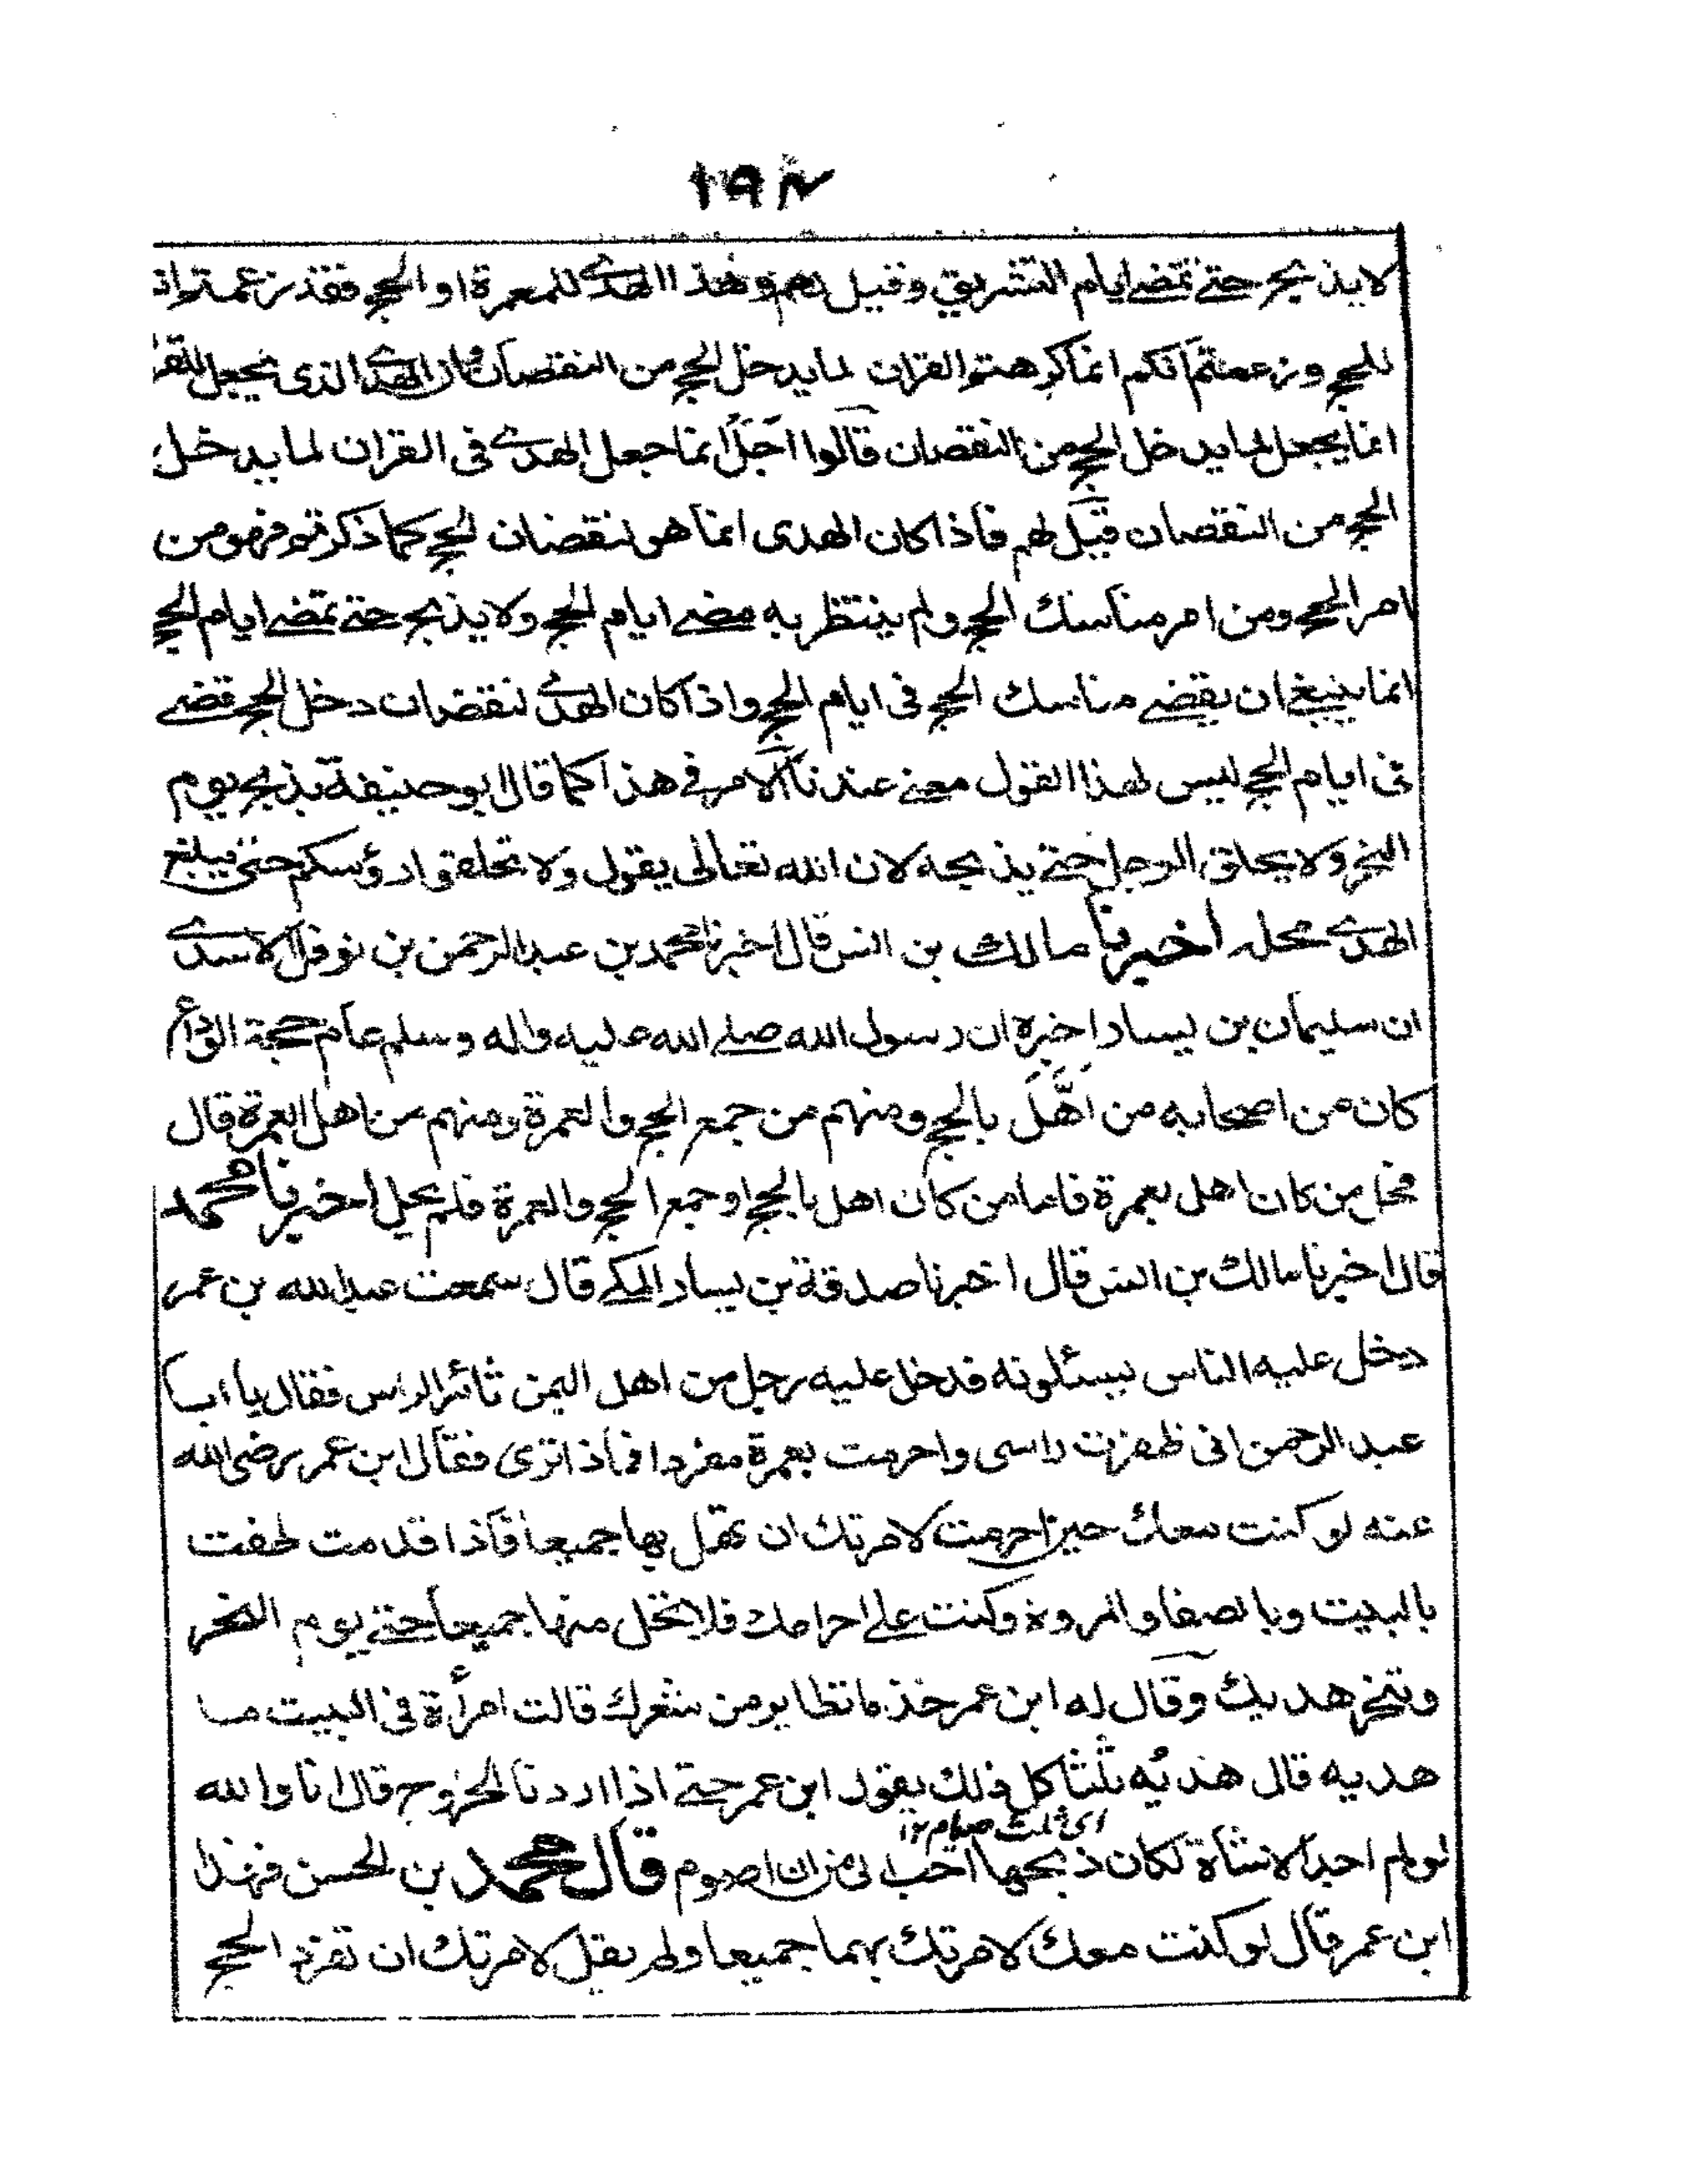 ١٩٤
لا يذبح حتے تمضے ايام التشريق وقيل لهم وهذا الهدے للعمرة او الحج فقد زعمتم انه
للحج وزعمتم انكم انما كرهتم القران لما يدخل الحج من النقصان فان الهدے الذى يجعل للقر
انما يجعل لما يدخل الحج من النقصان قالوا اَجَلْ انما جعل الهدے فى القران لما يدخل
الحج من النقصان قيل لهم فاذا كان الهدى انما هو لنقصان الحج كما ذكرتم فهو من
امر الحج ومن امر مناسك الحج ولم ينتظر به مضے ايام الحج ولا يذبح حتے تمضے ايام الحج
انما ينبغے ان يقضے مناسك الحج فى ايام الحج واذا كان الهدے لنقصان دخل الحج قضے
فى ايام الحج ليس لهذا القول معنے عندنا الامر فے هذا كما قال ابو حنيفة يذبح يوم
النحر ولا يحلق الرجل حتے يذبحه لان الله تعالى يقول ولا تحلقوا رؤسكم حتى يبلغ
الهدے محله اخبرنا مالك بن انس قال اخبرنا محمد بن عبد الرحمن بن نوفل الاسدے
ان سليمان بن يسار اخبره ان رسول الله صلے الله عليه واله وسلم عام حجة الوداع
كان من اصحابه من اَهَّلَ بالحج ومنهم من جمع الحج والعمرة ومنهم من اهل العمرة قال
فحل من كان اهل بعمرة فاما من كان اهل بالحج او جمع الحج والعمرة فلم يحل اخبرنا محمد
قال اخبرنا مالك بن انس قال اخبرنا صدقة بن يسار المكے قال سمعت عبد الله بن عمر
دخل عليه الناس يسئلونه فدخل عليه رجل من اهل اليمن ثائر الراس فقال يا ابا
عبد الرحمن انى ظفرت راسى واحرمت بعمرة مفردا فماذا ترى فقال ابن عمر رضى الله
عنه لو كنت معك حين احرمت لامرتك ان تهل بها جميعا فاذا قدمت طفت
بالبيت وبالصفا والمروة وكنت علے احرامك فلا تحل منها جميعا حتے يوم النحر
وتنحر هديك وقال له ابن عمر خذ ما تطاير من شعرك قالت امرأة فى البيت ما
هديه قال هديُه ثلثا كل ذلك يقول ابن عمر حتے اذا اردنا الخروج قال انا والله
اى ثلث صيام ١٢
لو لم اجد الا شاة لكان ذبحها احب الى من ان اصوم قال محمد بن الحسن فهذا
ابن عمر قال لو كنت معك لامرتك بهما جميعا ولم يقل لامرتك ان تفرد الحج